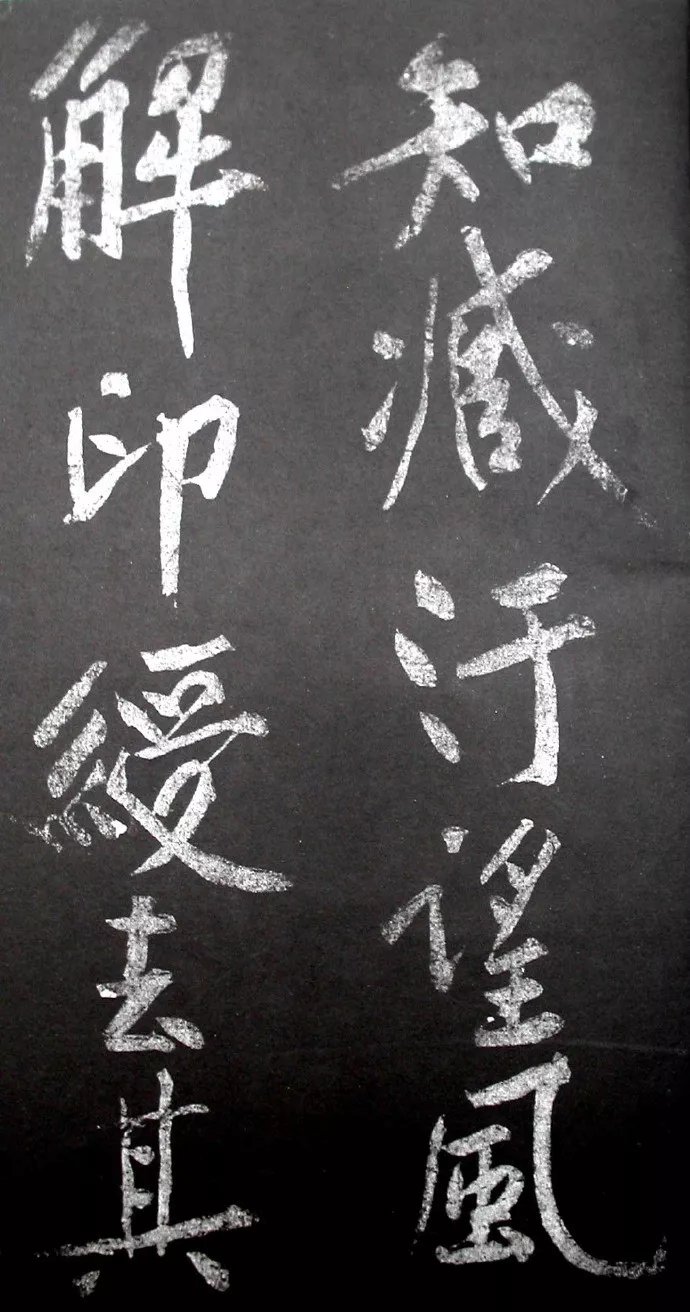 知臧汙望風
解印綬去其